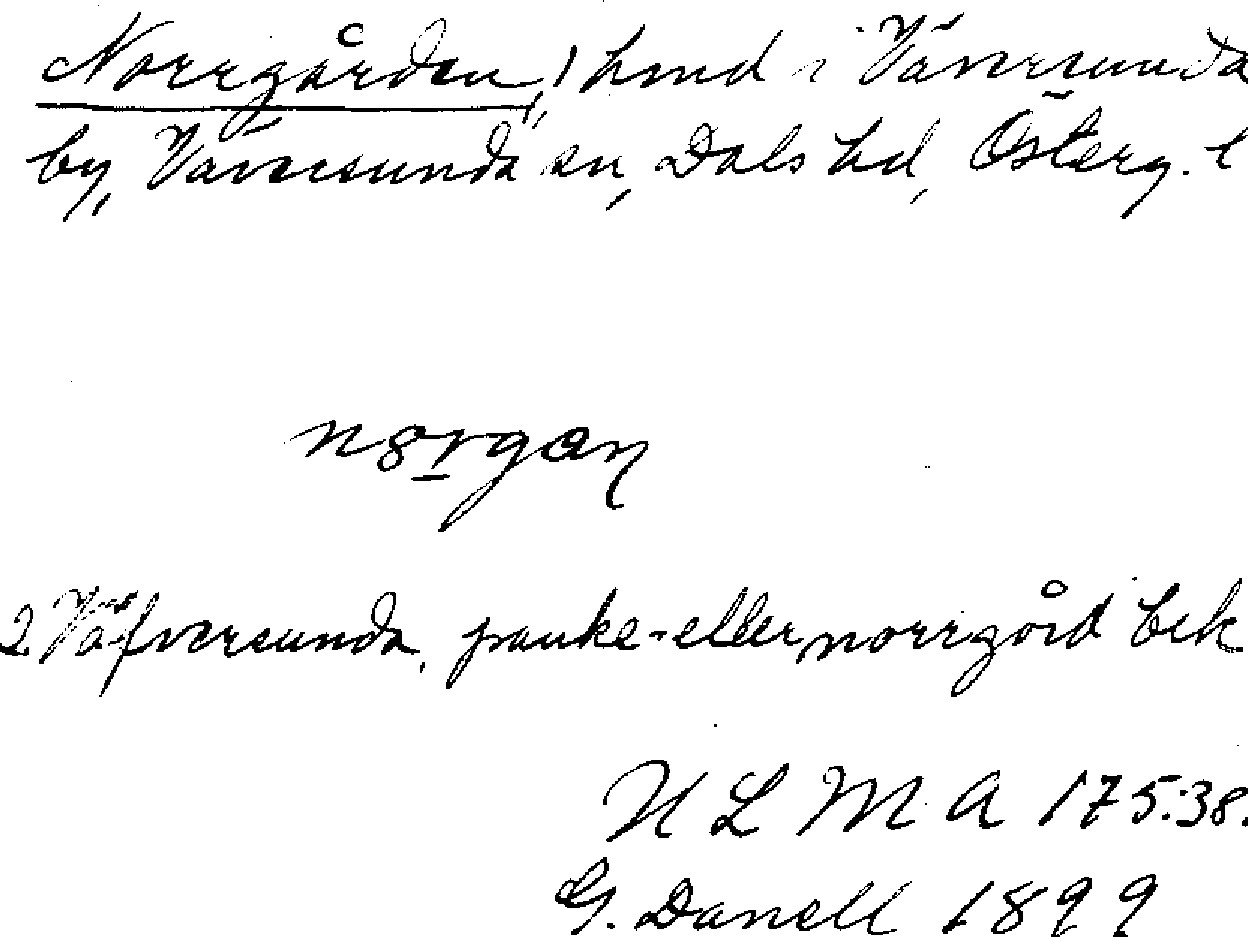 Norrgården, hmd i Väversunda
by, Väversunda sn, Dals hd, Österg. l
n8rgan
2 Väfversunda, panke- eller norrgård bek
U L M A 175:38.
G. Danell 1899